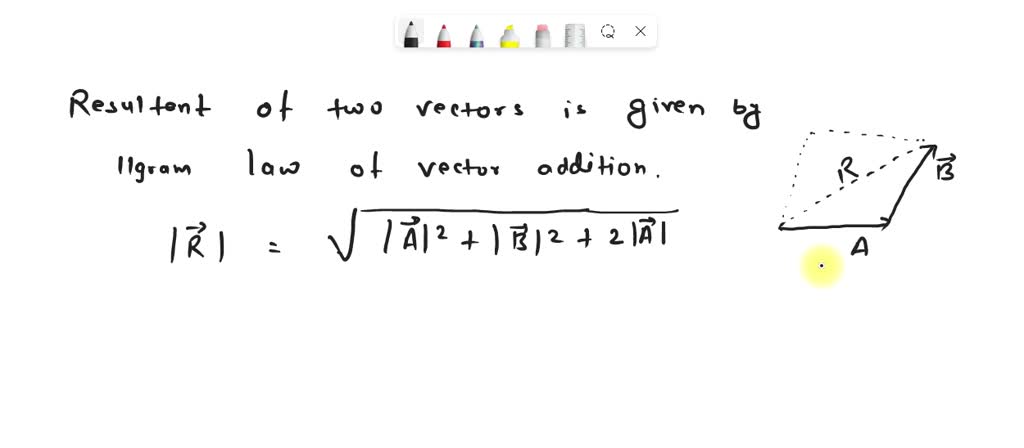 Resultent of two vectors is given by
llgram law of vector addition.
|R⃗| = √|A⃗|² + |B⃗|² + 2|A⃗|
R
B⃗
A